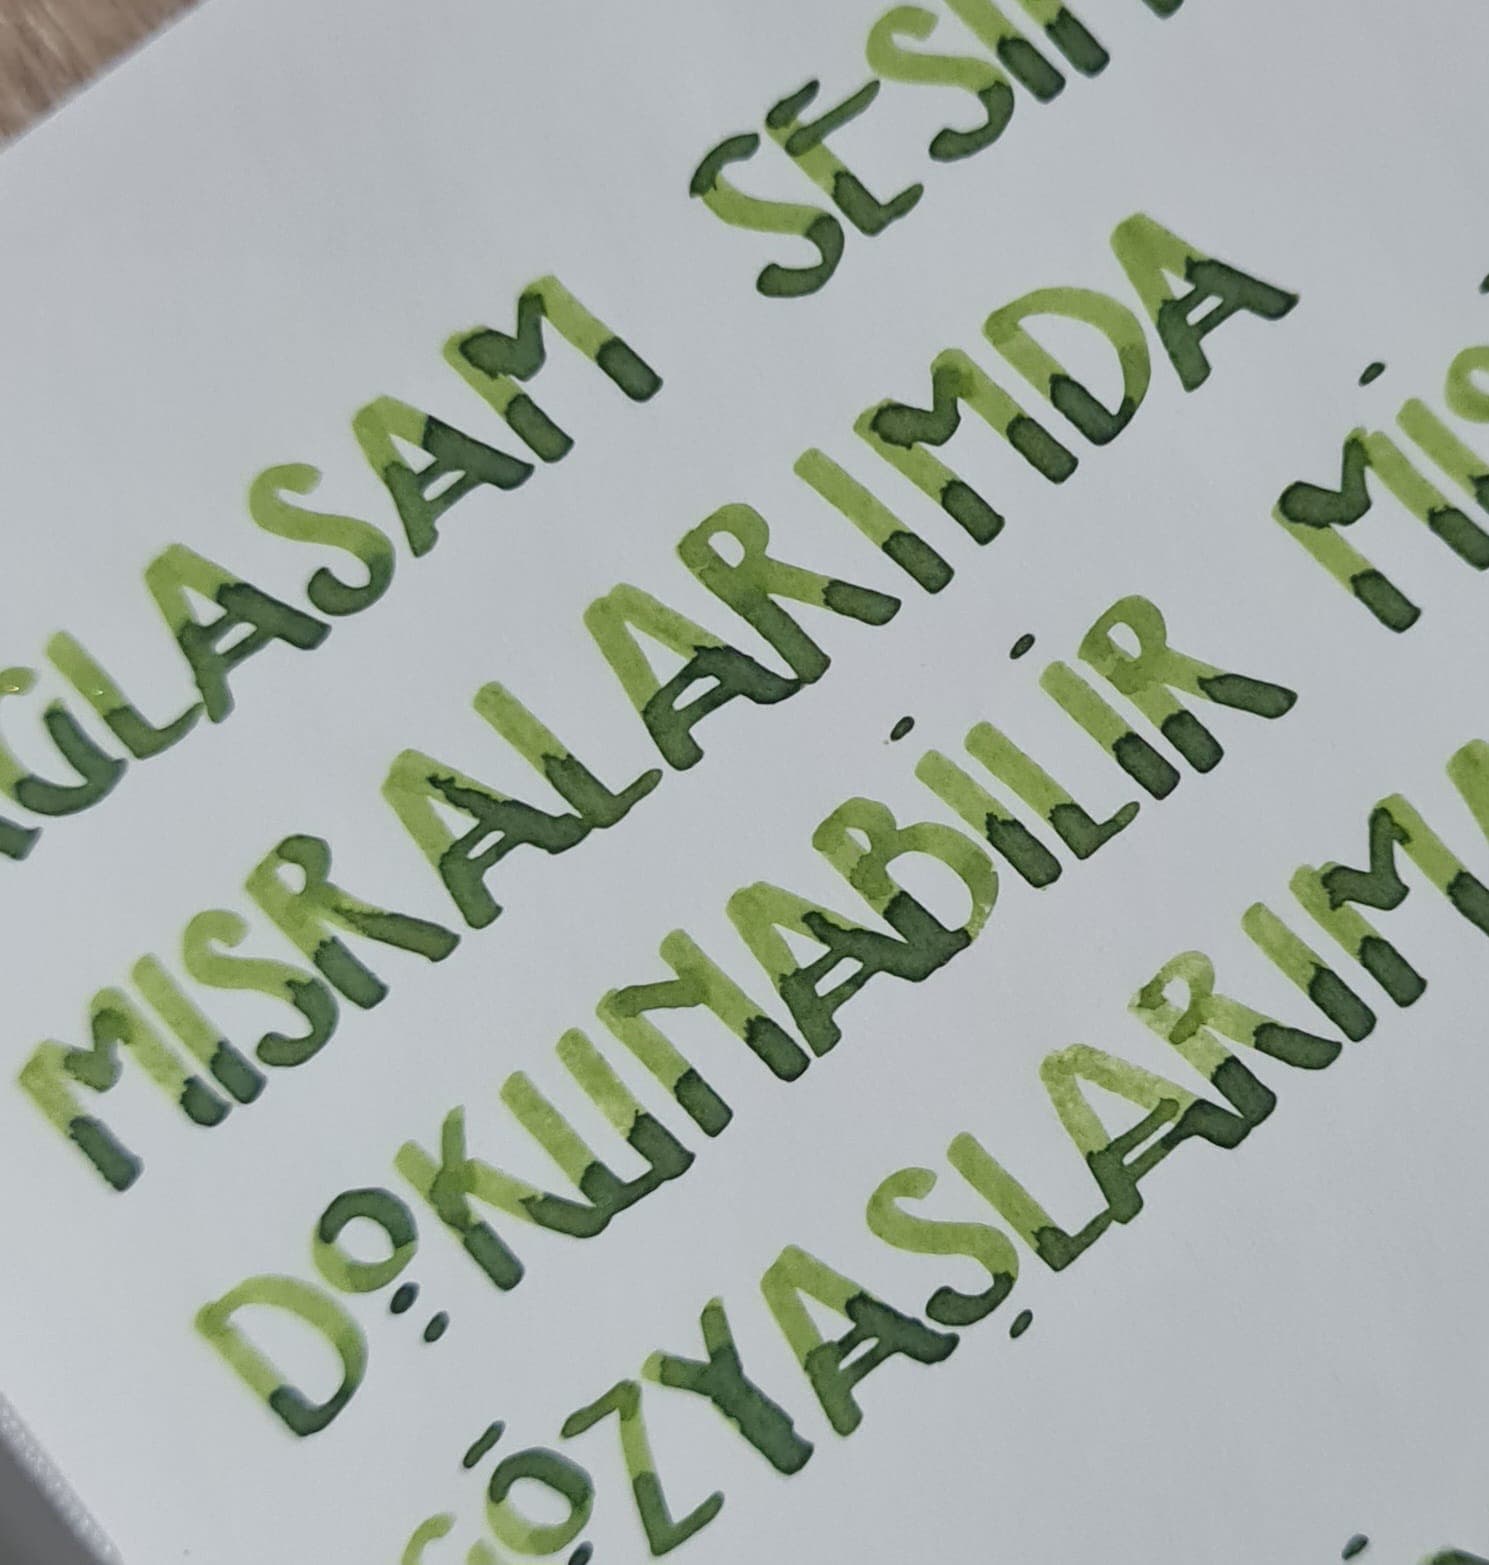 AĞLASAM SESİM
MISRALARIMDA
DOKUNABİLİR MİS
GÖZYAŞLARIMA